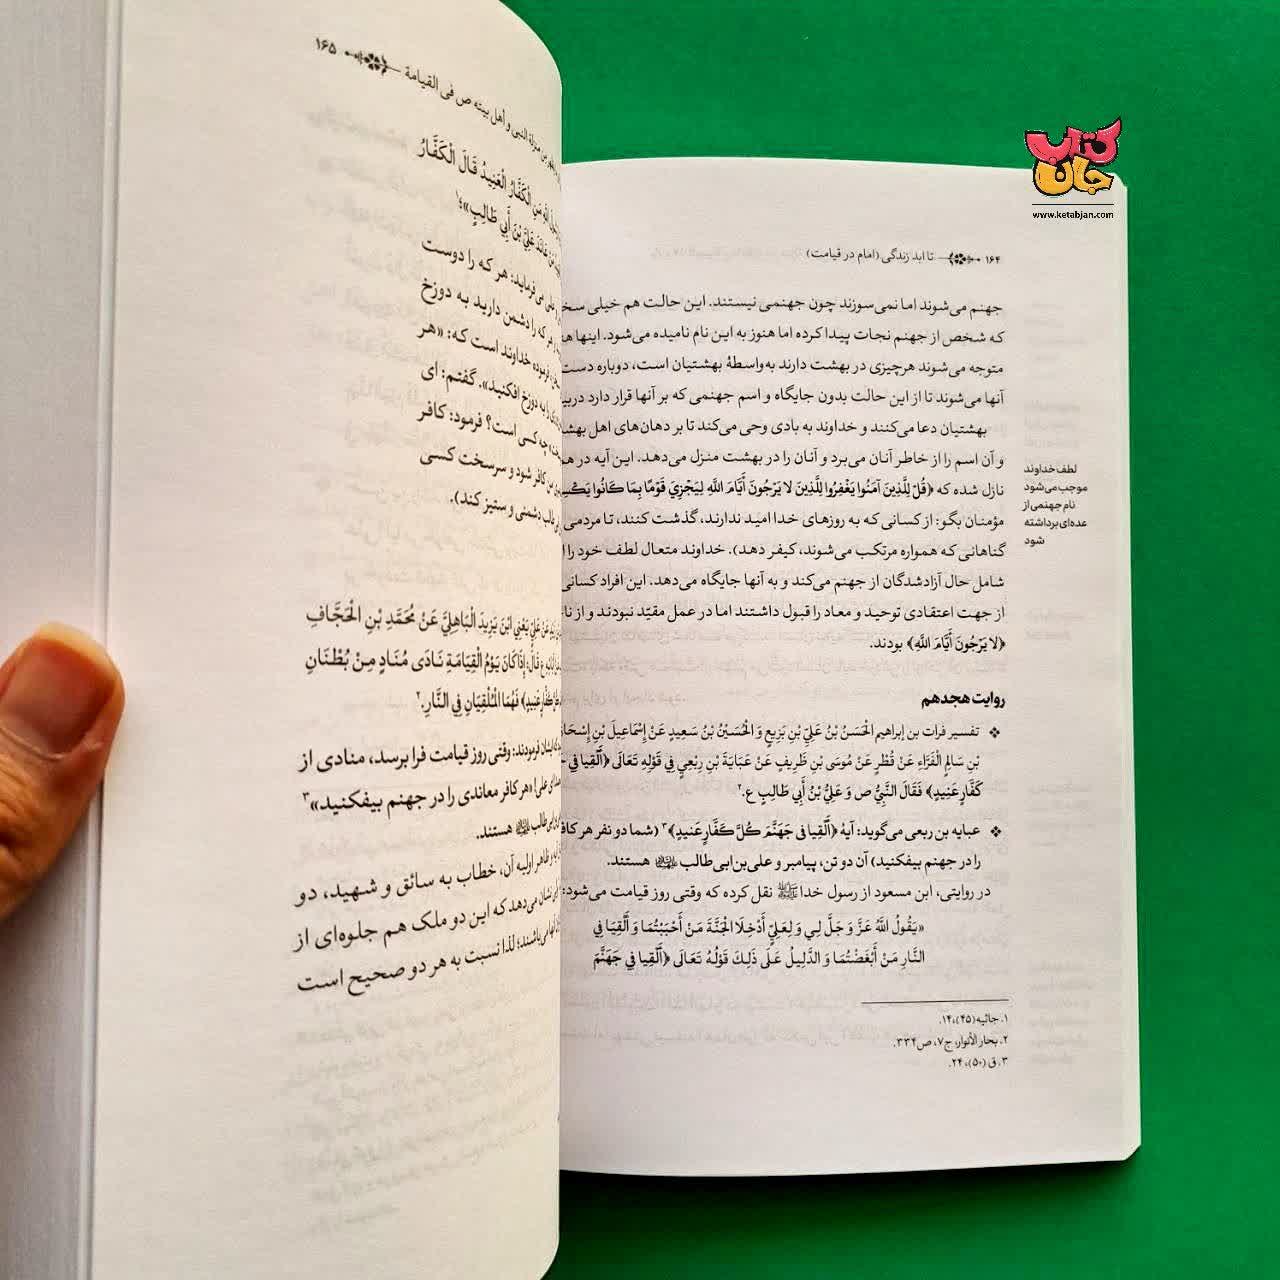 کتاب جان
www.ketabjan.com
۱۶۴ تا ابد زندگی (امام در قیامت)
جهنم می‌شوند اما نمی‌سوزند چون جهنمی نیستند. این حالت هم خیلی
که شخص از جهنم نجات پیدا کرده اما هنوز به این نام نامیده می‌شود. اینها
متوجه می‌شوند هرچیزی در بهشت دارند به‌واسطهٔ بهشتیان است، دوباره دست
آنها می‌شوند تا از این حالت بدون جایگاه و اسم جهنمی که بر آنها قرار دارد
بهشتیان دعا می‌کنند و خداوند به بادی وحی می‌کند تا بر دهان‌های اهل
و آن اسم را از خاطر آنان می‌برد و آنان را در بهشت منزل می‌دهد. این آیه در
نازل شده که ﴿قُلْ لِلَّذِينَ آمَنُوا يَغْفِرُوا لِلَّذِينَ لا يَرْجُونَ أَيَّامَ اللَّهِ لِيَجْزِيَ قَوْمًا بِمَا كَانُوا
مؤمنان بگو: از کسانی که به روزهای خدا امید ندارند، گذشت کنند، تا مردمی
گناهانی که همواره مرتکب می‌شوند، کیفر دهد). خداوند متعال لطف خود را
شامل حال آزادشدگان از جهنم می‌کند و به آنها جایگاه می‌دهد. این افراد کسانی
از جهت اعتقادی توحید و معاد را قبول داشتند اما در عمل مقیّد نبودند و از
﴿لا يَرْجُونَ أَيَّامَ اللَّهِ﴾ بودند.
لطف خداوند
موجب می‌شود
نام جهنمی از
عده‌ای برداشته
شود
روایت هجدهم
❖ تفسیر فرات بن إبراهیم الْحَسَنُ بْنُ عَلِيِّ بْنِ بَزِيعٍ وَ الْحُسَيْنُ بْنُ سَعِيدٍ عَنْ إِسْمَاعِيلَ بْنِ
بْنِ سَالِمٍ الْفَرَّاءِ عَنْ فُطْرٍ عَنْ مُوسَى بْنِ ظَرِيفٍ عَنْ عَبَايَةَ بْنِ رِبْعِيٍ فِي قَوْلِهِ تَعَالَى ﴿أَلْقِيا فِي
كَفَّارٍ عَنِيدٍ﴾ فَقَالَ النَّبِيُّ ص وَ عَلِيُّ بْنُ أَبِي طَالِبٍ ع.۲
❖ عبایه بن ربعی می‌گوید: آیهٔ ﴿أَلْقِيا فی جَهَنَّمَ كُلَّ كَفَّارٍ عَنيدٍ﴾۳ (شما دو نفر هر
را در جهنم بیفکنید) آن دو تن، پیامبر و علی‌بن‌ابی‌طالب هستند.
در روایتی، ابن مسعود از رسول خدا نقل کرده که وقتی روز قیامت می‌شود:
«يَقُولُ اللَّهُ عَزَّ وَ جَلَّ لِي وَ لِعَلِيٍّ أَدْخِلَا الْجَنَّةَ مَنْ أَحْبَبْتُمَا وَ أَلْقِيَا فِي
النَّارِ مَنْ أَبْغَضْتُمَا وَ الدَّلِيلُ عَلَى ذَلِكَ قَوْلُهُ تَعَالَى ﴿أَلْقِيا فِي جَهَنَّمَ
۱. جاثیه (۴۵)، ۱۴.
۲. بحار الأنوار، ج۷، ص۳۳۴.
۳. ق (۵۰)، ۲۴.
منزلة النبی و أهل بیته ص فی القیامة ۱۶۵
الْكَفَّارُ الْعَنِيدُ قَالَ الْكَفَّارُ
عَانَدَ عَلِيَّ بْنَ أَبِي طَالِبٍ»؛
می‌فرماید: هر که را دوست
هر که را دشمن دارید به دوزخ
فرموده خداوند است که: «هر
را به دوزخ افکنید». گفتم: ای
چه کسی است؟ فرمود: کافر
من کافر شود و سرسخت کسی
دشمنی و ستیز کند).
عَنْ عَلِيٍّ يَعْنِي ابْنَ يَزِيدَ الْبَاهِلِيَّ عَنْ مُحَمَّدِ بْنِ الْحَجَّافِ
قَالَ: إِذَا كَانَ يَوْمُ الْقِيَامَةِ نَادَى مُنَادٍ مِنْ بُطْنَانِ
كَفَّارٍ عَنِيدٍ﴾ فَهُمَا الْمُلْقِيَانِ فِي النَّارِ.۲
ایشان فرمودند: وقتی روز قیامت فرا برسد، منادی از
علی! «هر کافر معاندی را در جهنم بیفکنید»۳
هستند.
ظاهر اولیه آن، خطاب به سائق و شهید، دو
نشان می‌دهد که این دو ملک هم جلوه‌ای از
آنها می‌باشند؛ لذا نسبت به هر دو صحیح است